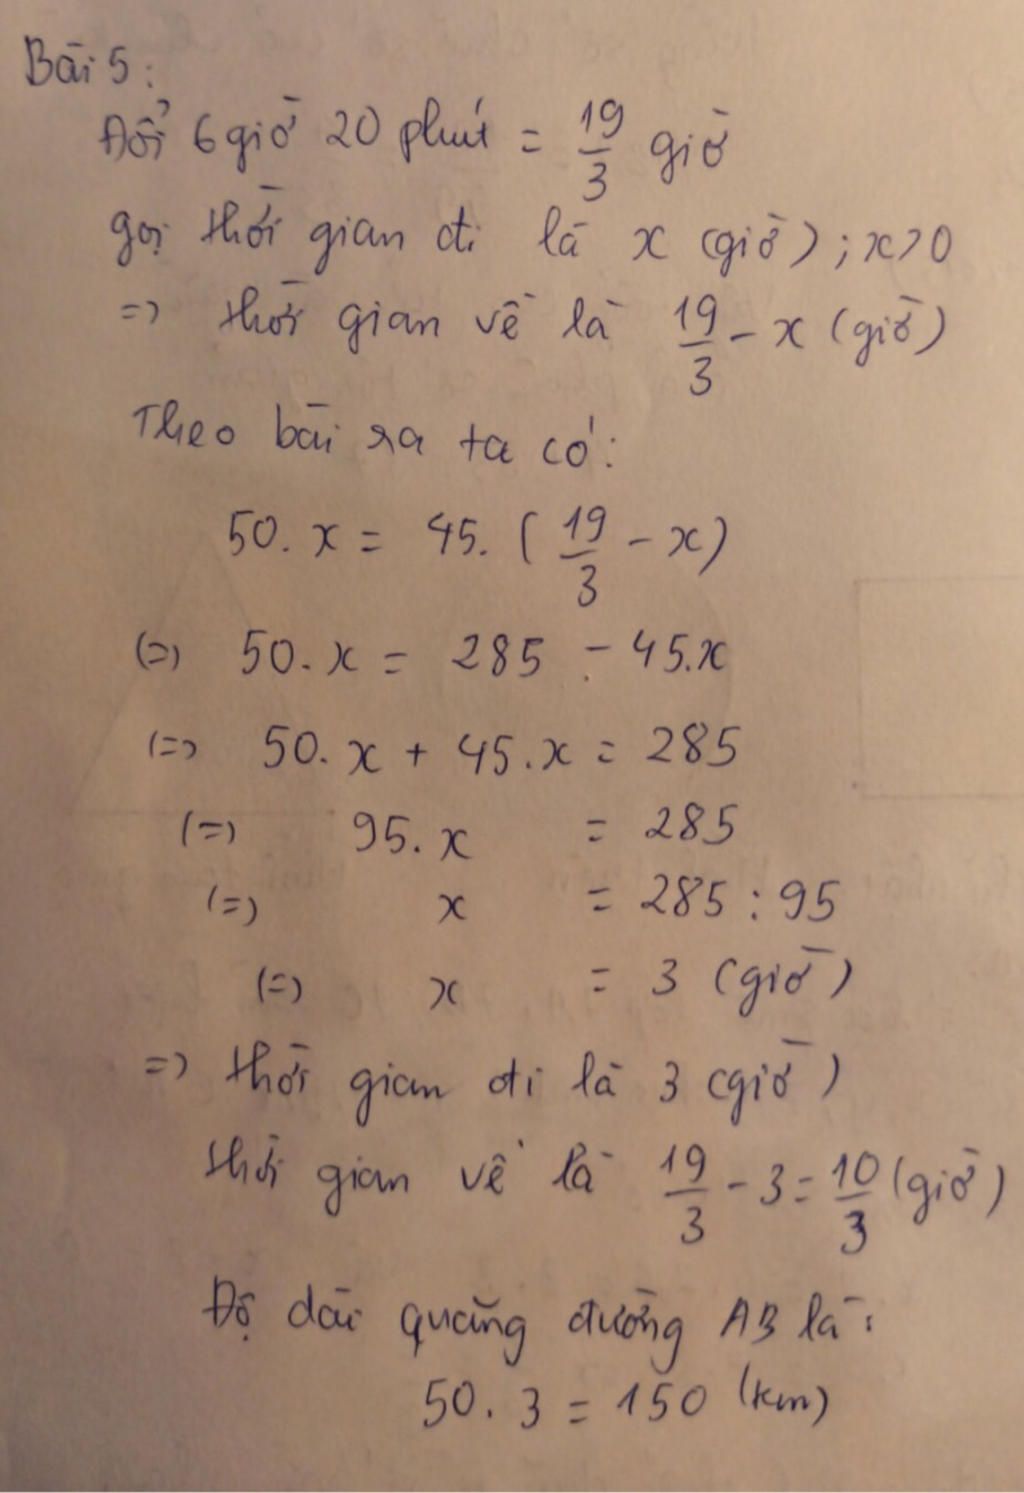 Bài 5:
Đổi 6 giờ 20 phút = 19/3 giờ
gọi thời gian đi là x (giờ); x>0
=> thời gian về là 19/3 - x (giờ)
Theo bài ra ta có:
50. x = 45. (19/3 - x)
(=) 50. x = 285 - 45.x
(=) 50. x + 45. x = 285
(=) 95. x = 285
(=) x = 285 : 95
(=) x = 3 (giờ)
=> thời gian đi là 3 (giờ)
thời gian về là 19/3 - 3 = 10/3 (giờ)
Độ dài quãng đường AB là:
50. 3 = 150 (km)